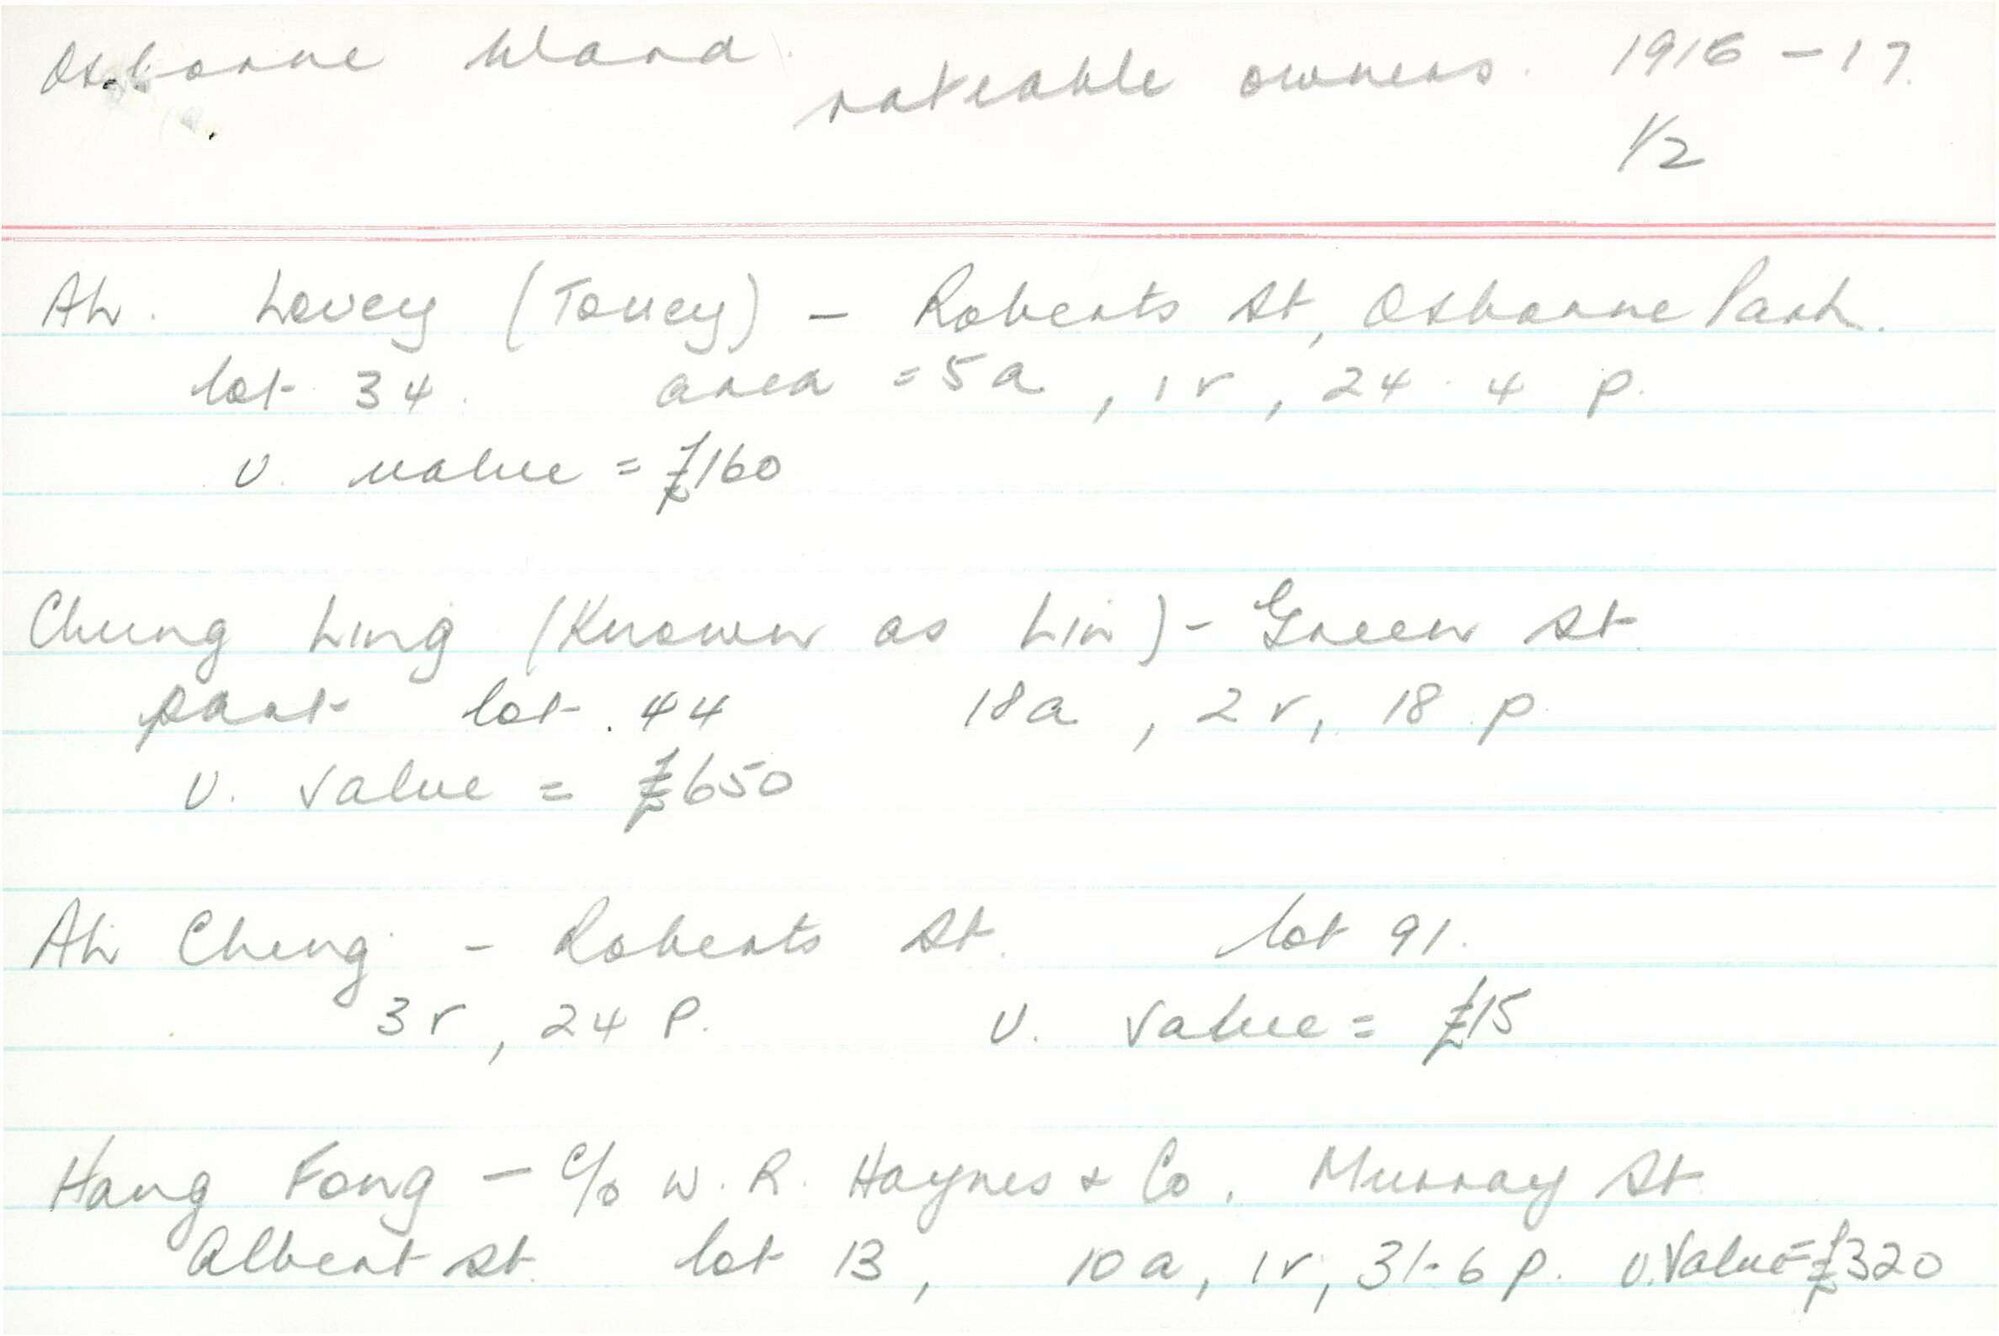 Osborne Ward. rateable owners. 1916 - 17.
1/2
Ah. Lovey (Tovey) - Roberts St, Osborne Park.
lot 34. area = 5a, 1r, 24.4 p.
U. value = £160
Chung Ling (Known as Lin) - Green St
part lot. 44 18a, 2r, 18 p
U. Value = £650
Ah Cheng - Roberts St. lot 91.
3r, 24 P. U. Value = £15
Hang Fong - c/o W. R. Haynes & Co, Murray St
Albert St. lot 13, 10a, 1r, 31.6 p. U. Value = £320